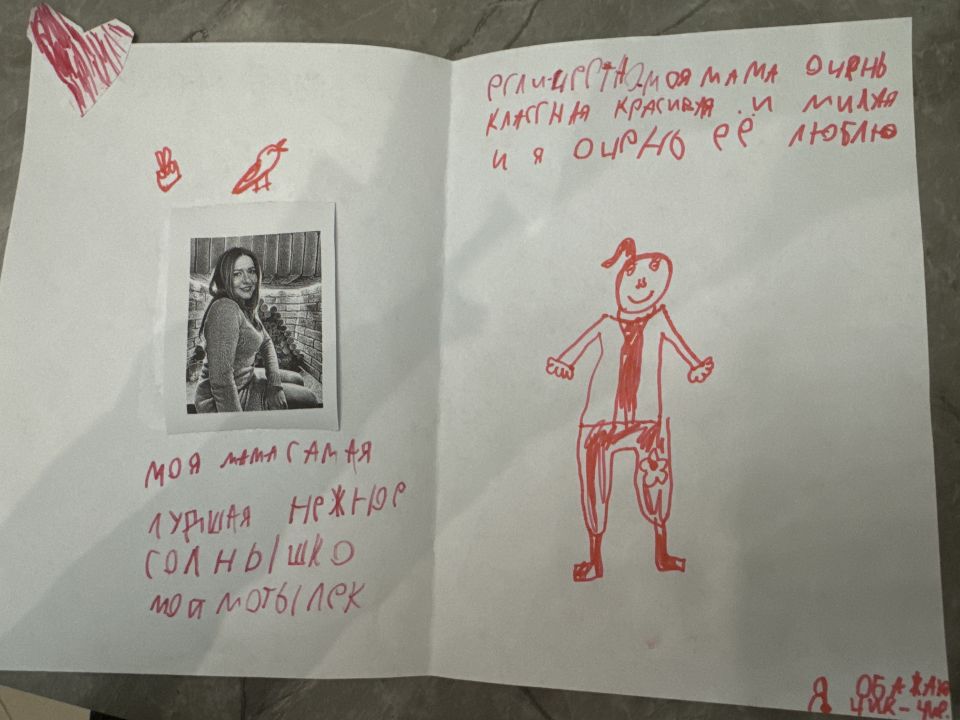 МОЯ МАМА САМАЯ
ЛУДШАЯ НЕЖНОЕ
СОЛНЫШКО
МОЙ МОТЫЛЕК
ЕСЛИ ЧЕСТНО МОЯ МАМА ОЧЕНЬ
КЛАССНАЯ КРАСИВАЯ И МИЛАЯ
И Я ОЧЕНЬ ЕЁ ЛЮБЛЮ
Я ОБАЖАЮ
ЧИК-ЧИР